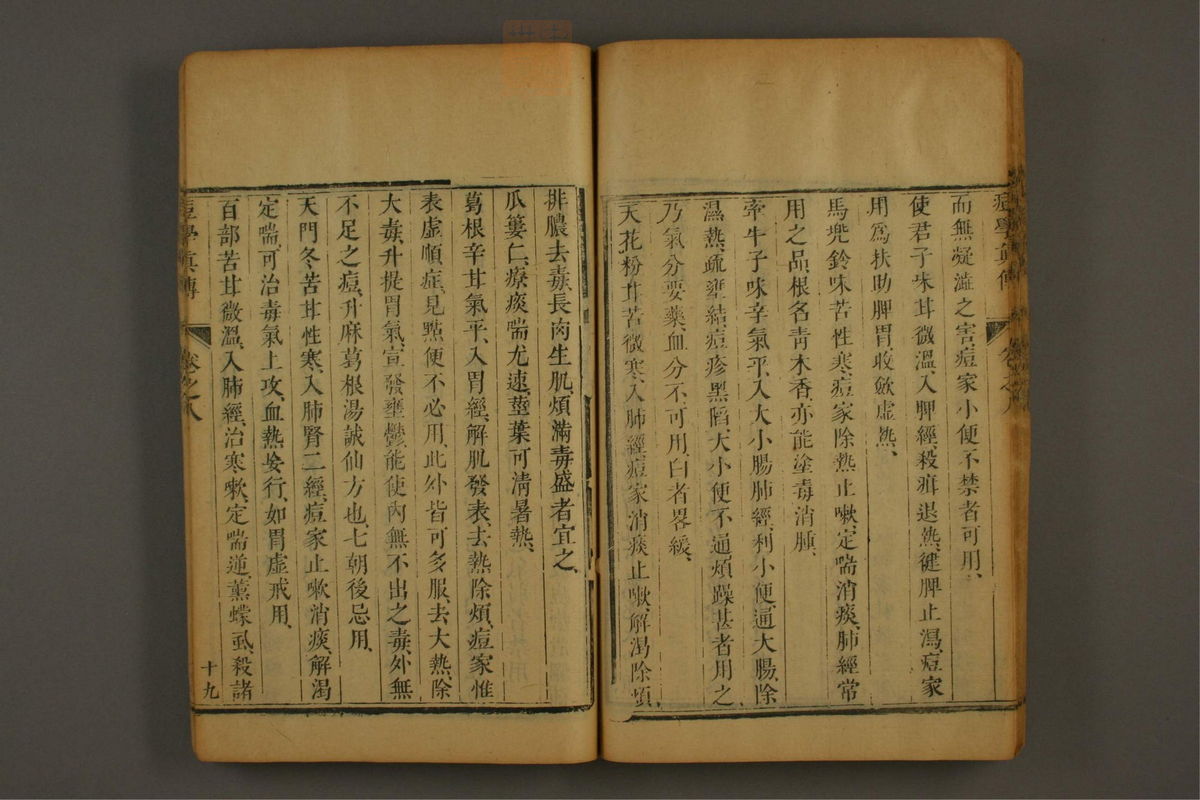 痘學眞傳
卷之八
而無凝澁之害痘家小便不禁者可用、
使君子味甘微溫、入脾經、殺疳退熱、健脾止瀉、痘家
用爲扶助脾胃收斂虛熱、
馬兜鈴味苦性寒、痘家除熱止嗽、定喘消痰、肺經常
用之品、根名青木香、亦能塗毒消腫、
牽牛子味辛氣平、入大小腸肺經、利小便、通大腸、除
濕熱、疏壅結、痘疹黑陷、大小便不通、煩躁甚者用之
乃氣分要藥、血分不可用、白者畧緩、
天花粉甘苦微寒、入肺經、痘家消痰止嗽、解渴除煩
排膿去毒、長肉生肌、煩滿毒盛者宜之、
瓜蔞仁、療痰喘尤速、莖葉可淸暑熱、
葛根辛甘氣平、入胃經、解肌發表、去熱除煩、痘家惟
表虛順症、見點便不必用、此外皆可多服、去大熱、除
大毒、升提胃氣、宣發壅鬱、能使內無不出之毒、外無
不足之痘、升麻葛根湯誠仙方也、七朝後忌用、
天門冬苦甘性寒、入肺腎二經、痘家止嗽消痰、解渴
定喘、可治毒氣上攻、血熱妄行、如胃虛戒用、
百部苦甘微溫、入肺經、治寒嗽、定喘逆、薰蠓虱、殺諸
痘學眞傳
卷之八
十九